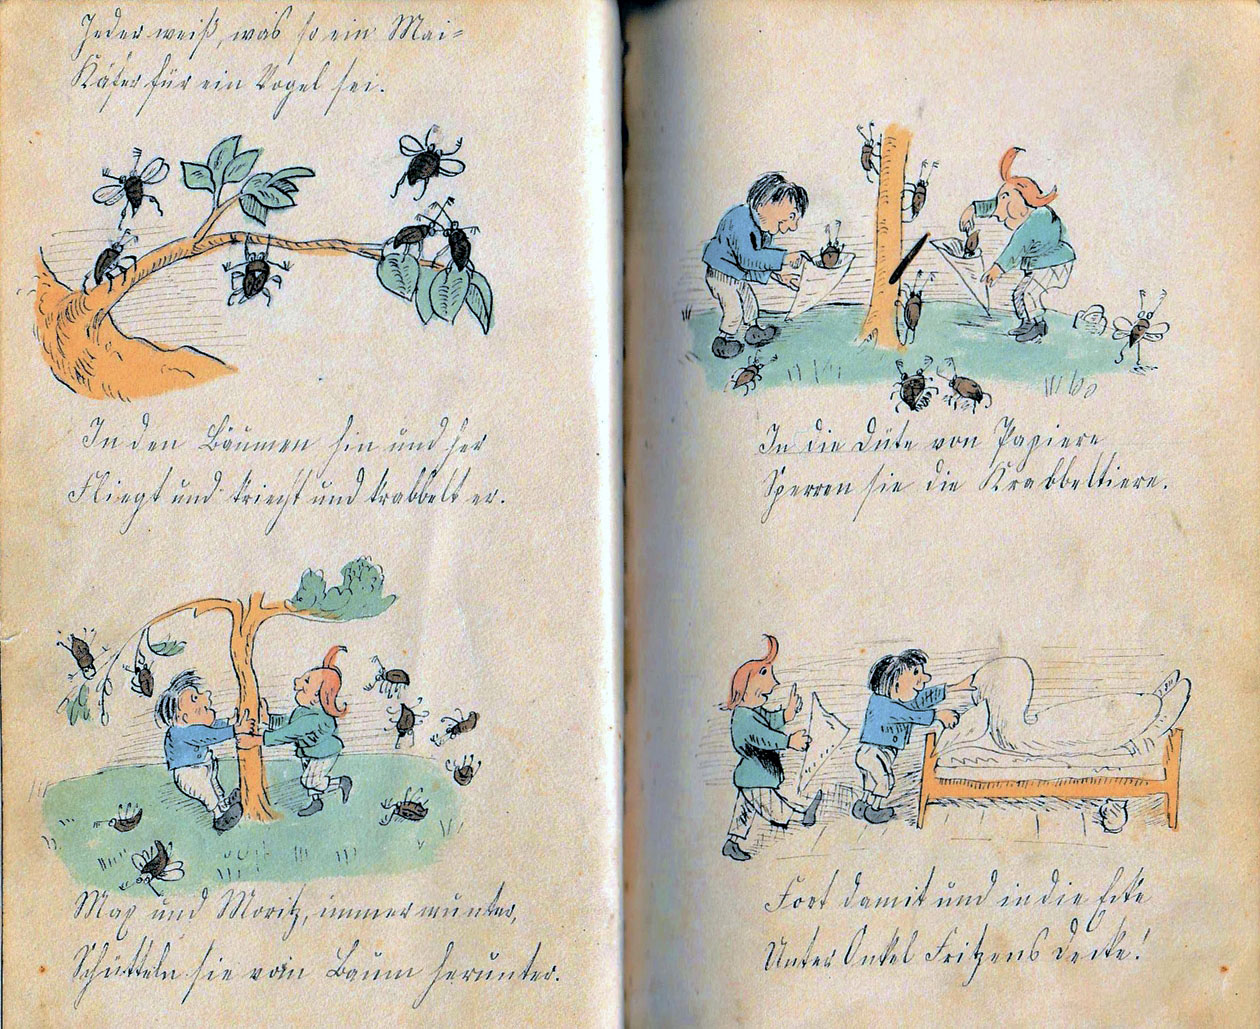 Jeder weiß, was so ein Mai-
Käfer für ein Vogel sei.
In den Bäumen hin und her
Fliegt und kriecht und krabbelt er.
Max und Moritz, immer munter,
Schütteln sie vom Baum herunter.
In die Düte von Papiere
Sperren sie die Krabbeltiere.
Fort damit und in die Ecke
Unter Onkel Fritzens Decke!